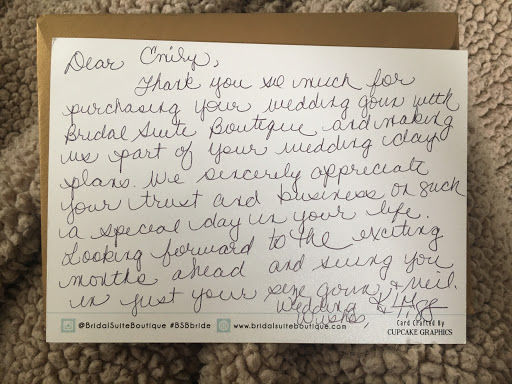 Dear Emily,
Thank you so much for
purchasing your wedding gown with
Bridal Suite Boutique and making
us part of your wedding day
plans. We sincerely appreciate
your trust and business on such
a special day in your life.
Looking forward to the exciting
months ahead and seeing you
in just your size gown & veil.
Wedding
Wishes,
@BridalSuiteBoutique #BSBbride www.bridalsuiteboutique.com
Card Crafted By
CUPCAKE GRAPHICS